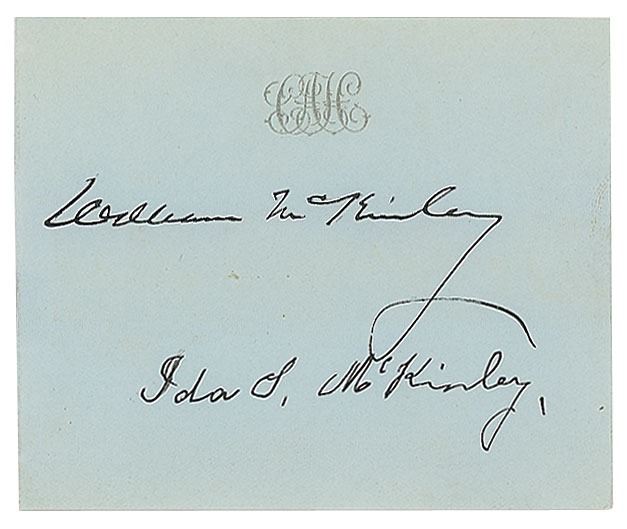 William McKinley
Ida S. McKinley,